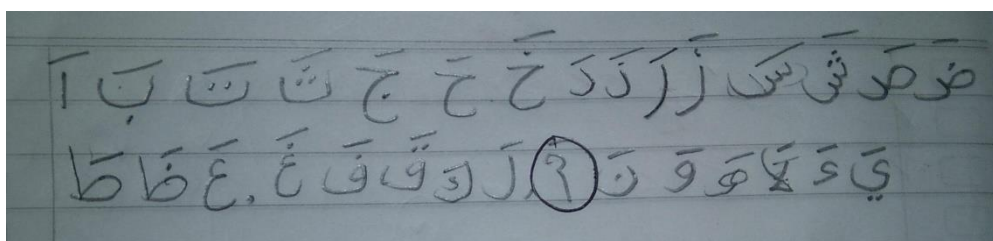 اَ بَ تَ ثَ جَ حَ خَ دَ ذَ رَ زَ سَ شَ صَ ضَ
طَ ظَ عَ غَ فَ قَ كَ لَ مَ نَ وَ هَ لاَ ءَ يَ